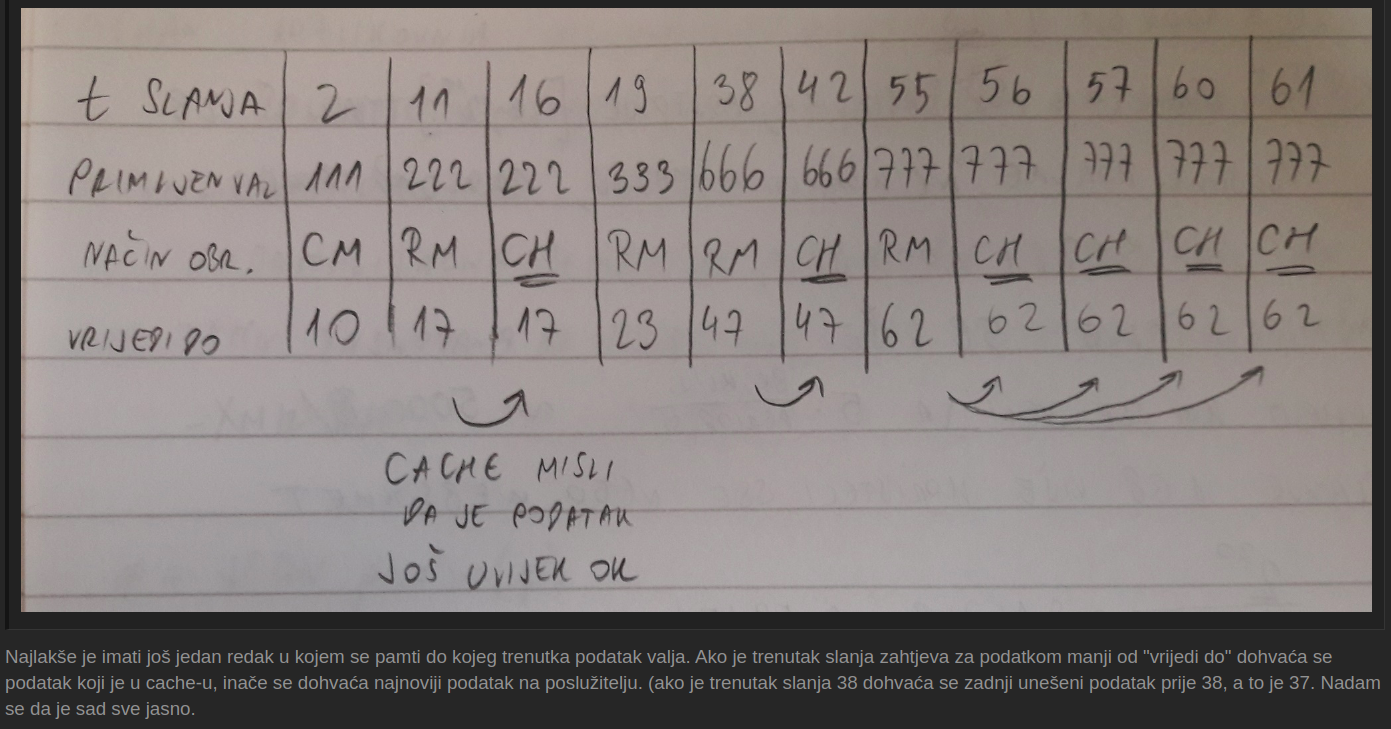 t SLANJA 2 11 16 19 38 42 55 56 57 60 61
PRIMIJEN VAL 111 222 222 333 666 666 777 777 777 777 777
NAČIN OBR. CM RM CH RM RM CH RM CH CH CH CH
VRIJEDI DO 10 17 17 23 47 47 62 62 62 62 62
CACHE MISLI
DA JE PODATAK
JOŠ UVIJEK OK
Najlakše je imati još jedan redak u kojem se pamti do kojeg trenutka podatak valja. Ako je trenutak slanja zahtjeva za podatkom manji od "vrijedi do" dohvaća se
podatak koji je u cache-u, inače se dohvaća najnoviji podatak na poslužitelju. (ako je trenutak slanja 38 dohvaća se zadnji unešeni podatak prije 38, a to je 37. Nadam
se da je sad sve jasno.